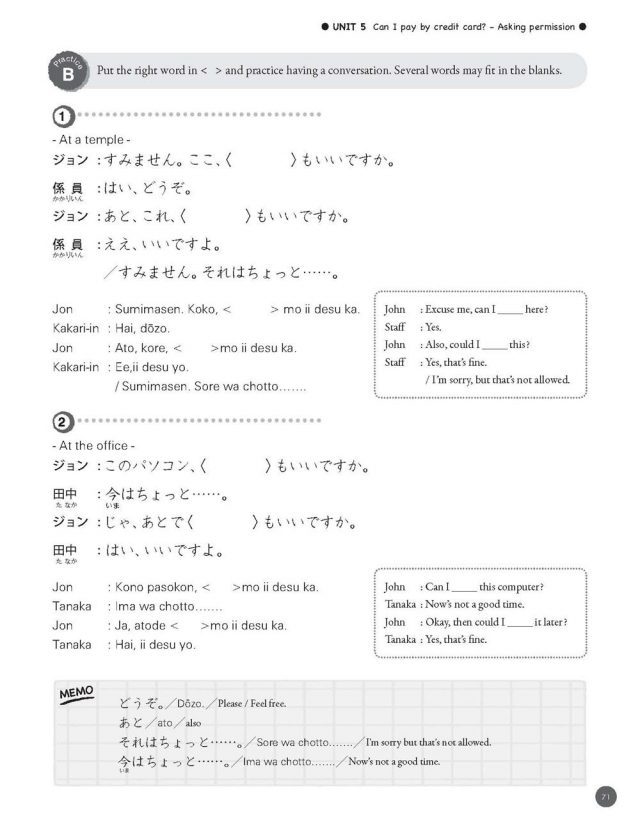 ● UNIT 5 Can I pay by credit card? – Asking permission ●
Practice B Put the right word in < > and practice having a conversation. Several words may fit in the blanks.
1
- At a temple -
ジョン：すみません。ここ、〈 〉もいいですか。
係員：はい、どうぞ。
かかりいん
ジョン：あと、これ、〈 〉もいいですか。
係員：ええ、いいですよ。
かかりいん
／すみません。それはちょっと……。
Jon : Sumimasen. Koko, < > mo ii desu ka.
Kakari-in : Hai, dōzo.
Jon : Ato, kore, < >mo ii desu ka.
Kakari-in : Ee,ii desu yo.
/ Sumimasen. Sore wa chotto…….
John : Excuse me, can I _____ here?
Staff : Yes.
John : Also, could I _____ this?
Staff : Yes, that's fine.
/ I'm sorry, but that's not allowed.
2
- At the office -
ジョン：このパソコン、〈 〉もいいですか。
田中：今はちょっと……。
たなか いま
ジョン：じゃ、あとで〈 〉もいいですか。
田中：はい、いいですよ。
たなか
Jon : Kono pasokon, < >mo ii desu ka.
Tanaka : Ima wa chotto…….
Jon : Ja, atode < >mo ii desu ka.
Tanaka : Hai, ii desu yo.
John : Can I _____ this computer?
Tanaka : Now's not a good time.
John : Okay, then could I _____ it later?
Tanaka : Yes, that's fine.
MEMO
どうぞ。／Dōzo.／Please / Feel free.
あと／ato／also
それはちょっと……。／Sore wa chotto…….／I'm sorry but that's not allowed.
今はちょっと……。／Ima wa chotto…….／Now's not a good time.
いま
71